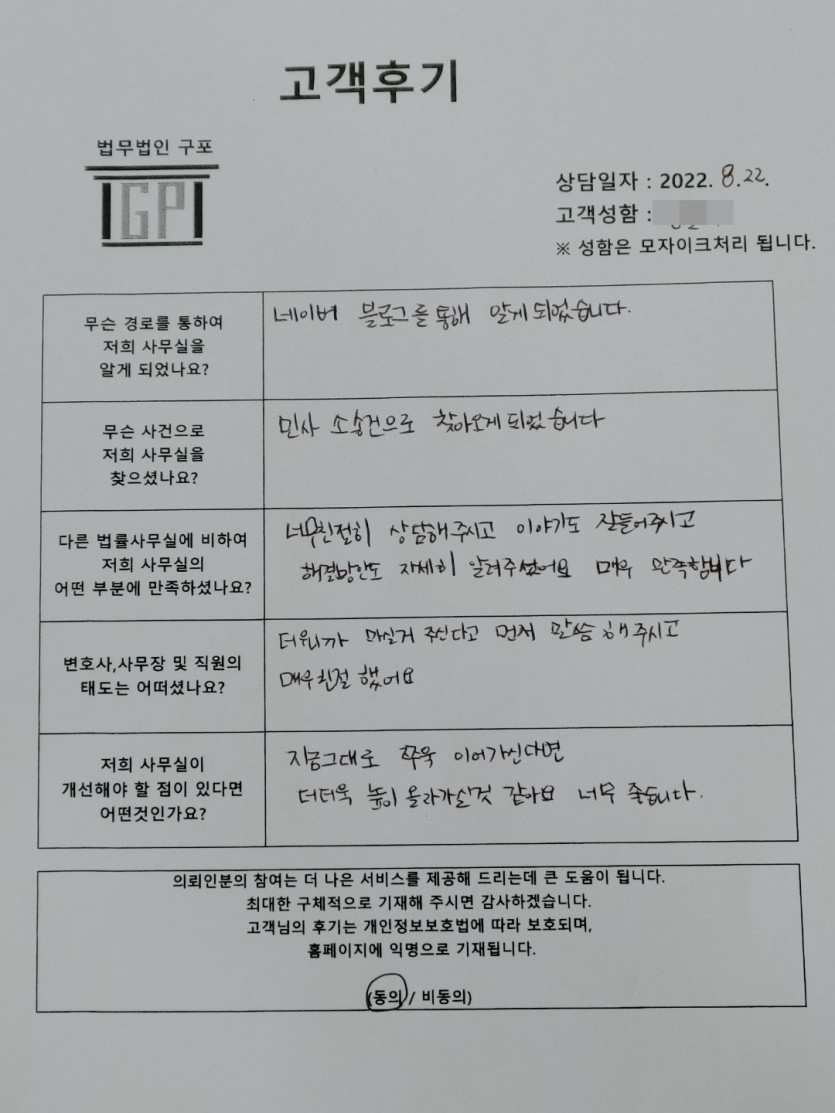 고객후기
법무법인 구포
GP
상담일자 : 2022. 8.22.
고객성함 :
※ 성함은 모자이크처리 됩니다.
무슨 경로를 통하여
저희 사무실을
알게 되었나요?
네이버 블로그를 통해 알게되었습니다.
무슨 사건으로
저희 사무실을
찾으셨나요?
민사 소송건으로 찾아오게되었습니다
다른 법률사무실에 비하여
저희 사무실의
어떤 부분에 만족하셨나요?
너무친절히 상담해주시고 이야기도 잘들어주시고
해결방안도 자세히 알려주셨어요 매우 만족합니다
변호사,사무장 및 직원의
태도는 어떠셨나요?
더우니까 마실거 주신다고 먼저 말씀해주시고
매우친절했어요
저희 사무실이
개선해야 할 점이 있다면
어떤것인가요?
지금그대로 쭈욱 이어가신다면
더더욱 높이 올라가실것 같아요 너무 좋습니다.
의뢰인분의 참여는 더 나은 서비스를 제공해 드리는데 큰 도움이 됩니다.
최대한 구체적으로 기재해 주시면 감사하겠습니다.
고객님의 후기는 개인정보보호법에 따라 보호되며,
홈페이지에 익명으로 기재됩니다.
(동의 / 비동의)